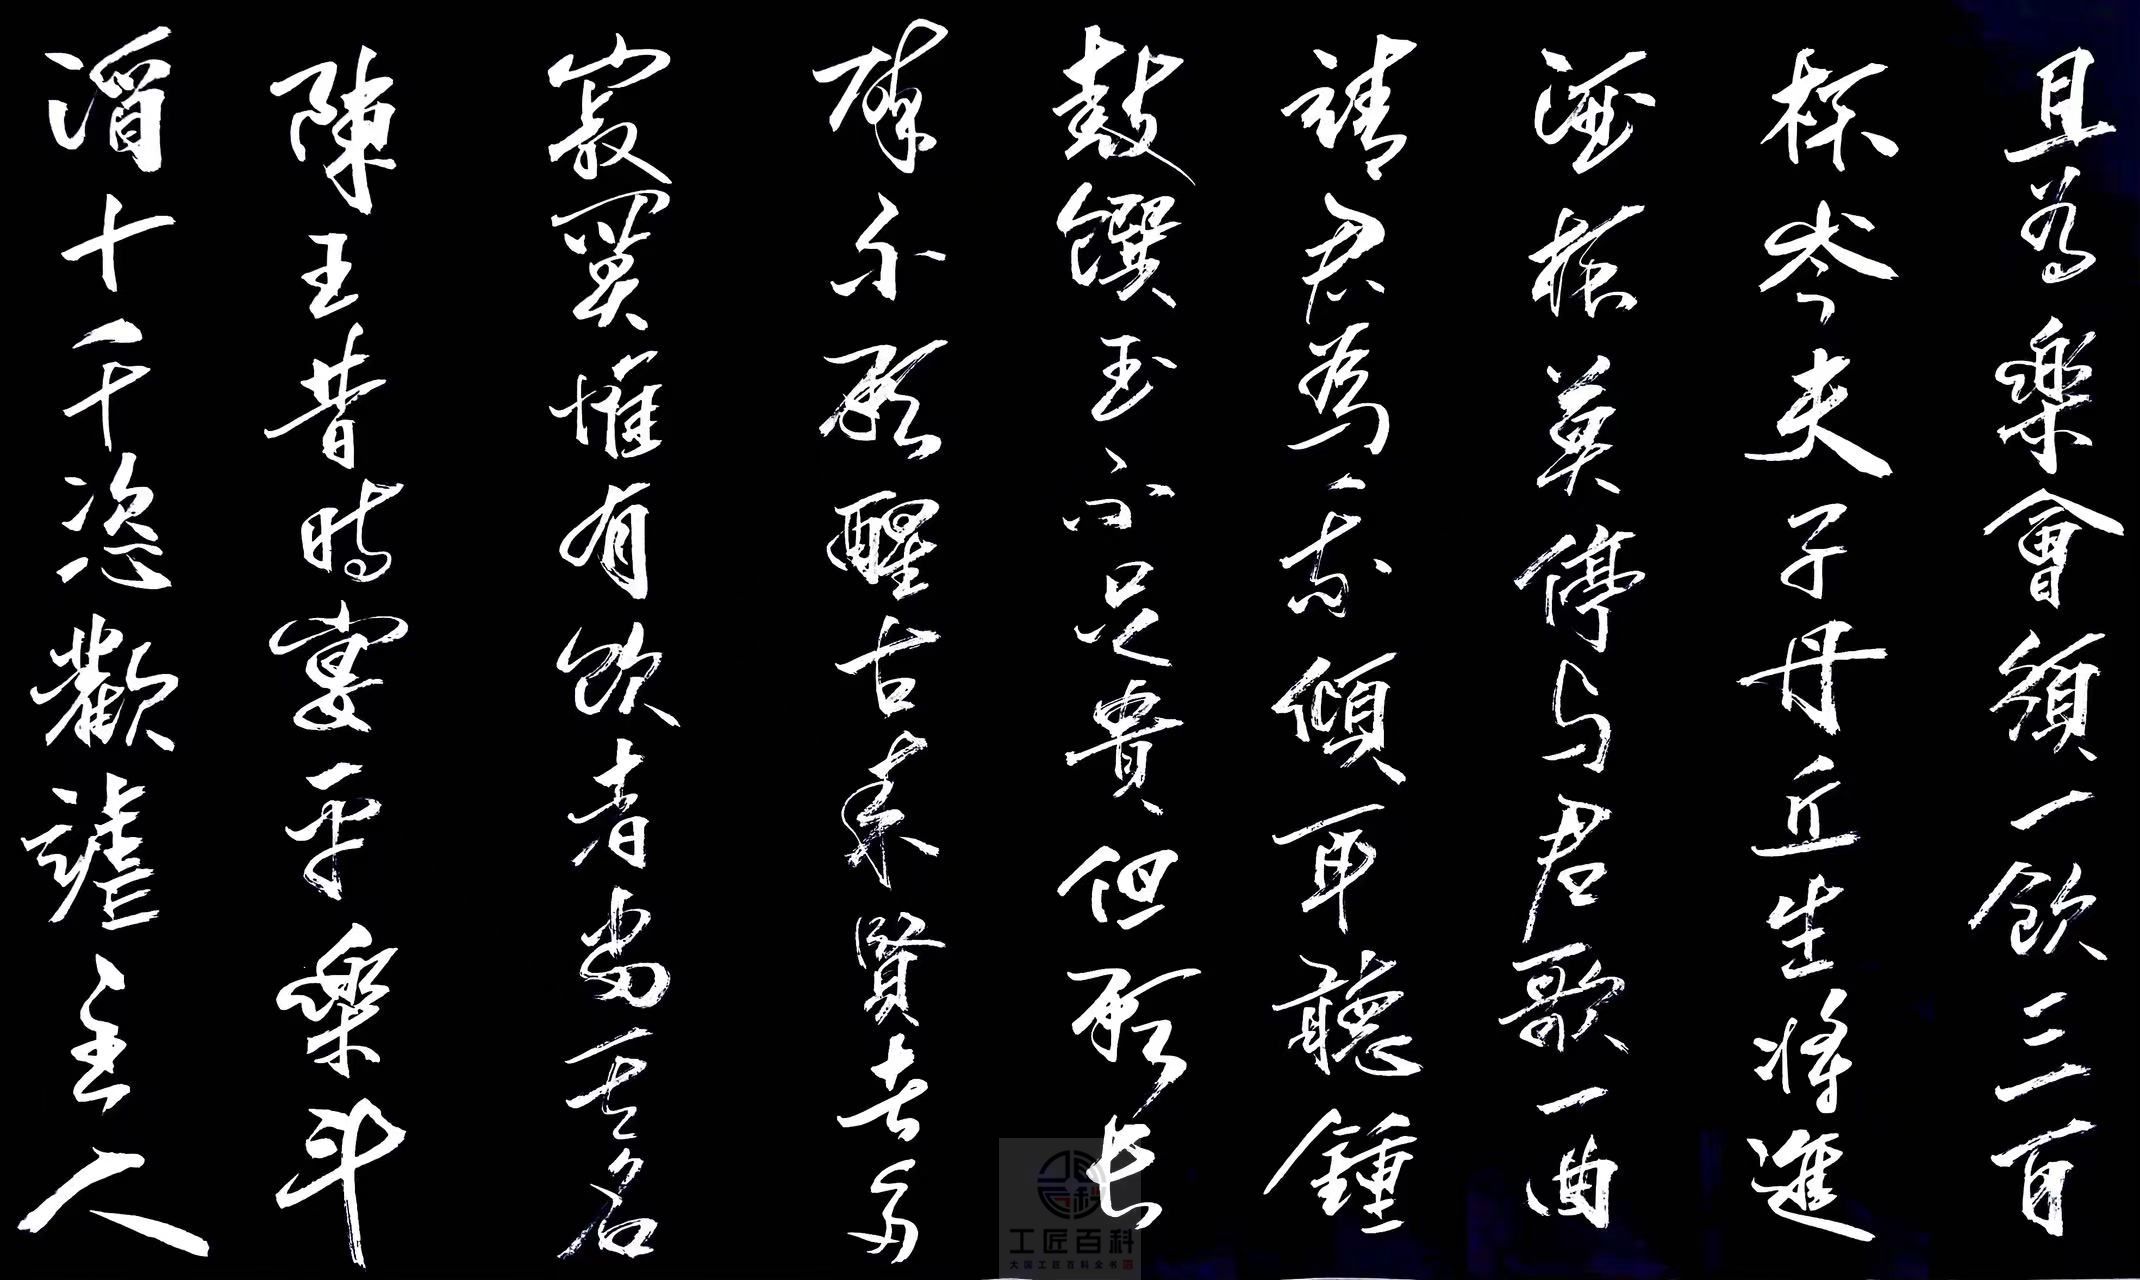 且為樂會須一飲三百
杯岑夫子丹丘生将進
酒杯莫停与君歌一曲
請君為我傾耳聽鍾
鼓饌玉不足貴但願長
醉不願醒古来賢者多
寂寞惟有飲者留其名
陳王昔時宴平樂斗
酒十千恣歡謔主人
工匠百科
大国工匠百科全书